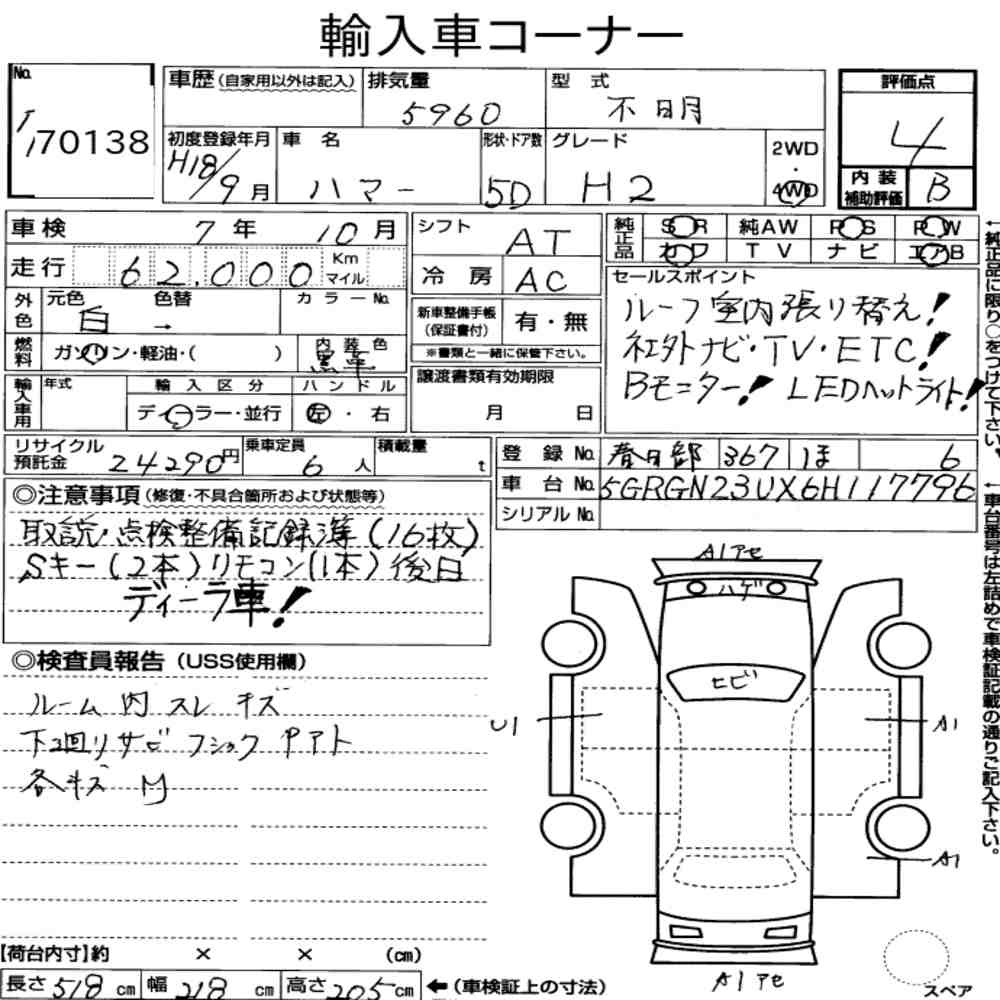 輸入車コーナー
No. 70138
車歴(自家用以外は記入)
排気量 5960
型式 不明
評価点 4
内装補助評価 B
初度登録年月 H18/9月
車名 ハマー
形状・ドア数 5D
グレード H2
2WD・4WD
車検 7年 10月
走行 62,000 Km マイル
外色 元色 白 色替 → カラーNo.
燃料 ガソリン・軽油・( )
内装色 黒革
輸入車用 年式
輸入区分 ディーラー・並行
ハンドル 左・右
シフト AT
冷房 AC
新車整備手帳(保証書付) 有・無
※書類と一緒に保管下さい。
譲渡書類有効期限
月 日
純正品 SR 純AW PS PW
カワ TV ナビ エアB
セールスポイント
ルーフ室内張り替え!
社外ナビ・TV・ETC!
Bモニター! LEDヘットライト!
←純正品に限り○をつけて下さい。
リサイクル預託金 24290円
乗車定員 6人
積載量 t
登録No. 春日部 367 ほ 6
車台No. 5GRGN23UX6H117796
シリアルNo.
←車台番号は左詰めで車検証記載の通りご記入下さい。
◎注意事項(修復・不具合箇所および状態等)
取説・点検整備記録簿(16枚)
Sキー(2本)リモコン(1本)後日
ディーラ車!
◎検査員報告(USS使用欄)
ルーム内 スレ キズ
下回りサビ フック Pアト
各キズ M
A1アセ
ハゲ
ヒビ
U1
A1
A1
A1アセ
スペア
【荷台内寸】約 × × (cm)
長さ 518 cm 幅 218 cm 高さ 205 cm ←(車検証上の寸法)